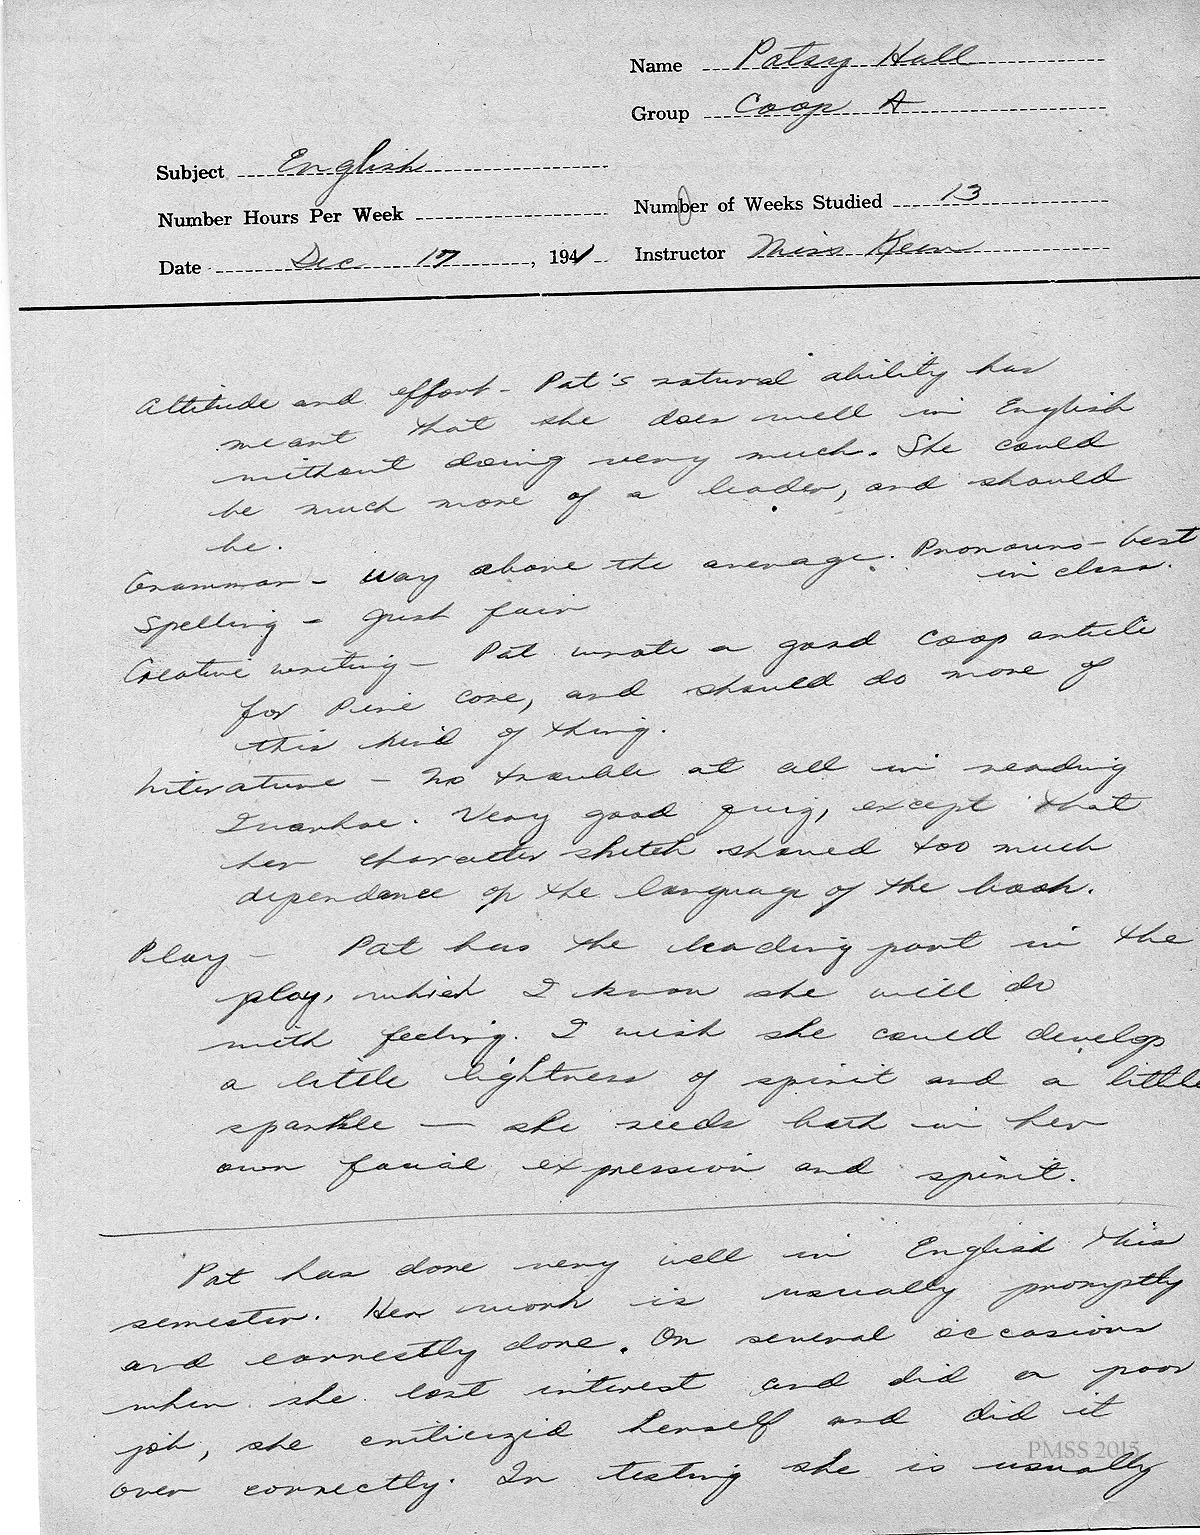 Name Patsy Hall
Group Coop A
Subject English
Number Hours Per Week
Number of Weeks Studied 13
Date Dec 17, 1941
Instructor Miss
Attitude and effort - Pat's natural ability has
meant that she does well in English
without doing very much. She could
be much more of a leader, and should
be.
Grammar - Way above the average. Pronouns - best
in class.
Spelling - Just fair
Creative writing - Pat wrote a good Coop article
for Pine cone, and should do more of
this kind of thing.
Literature - No trouble at all in reading
Ivanhoe. Very good quiz, except that
her character sketch showed too much
dependance on the language of the book.
Play - Pat has the leading part in the
play, which I know she will do
with feeling. I wish she could develop
a little lightness of spirit and a little
sparkle — she needs both in her
own facial expression and spirit.
Pat has done very well in English this
semester. Her work is usually promptly
and correctly done. On several occasions
when she lost interest and did a poor
job, she criticized herself and did it
over correctly. In testing she is usually
PMSS 2015